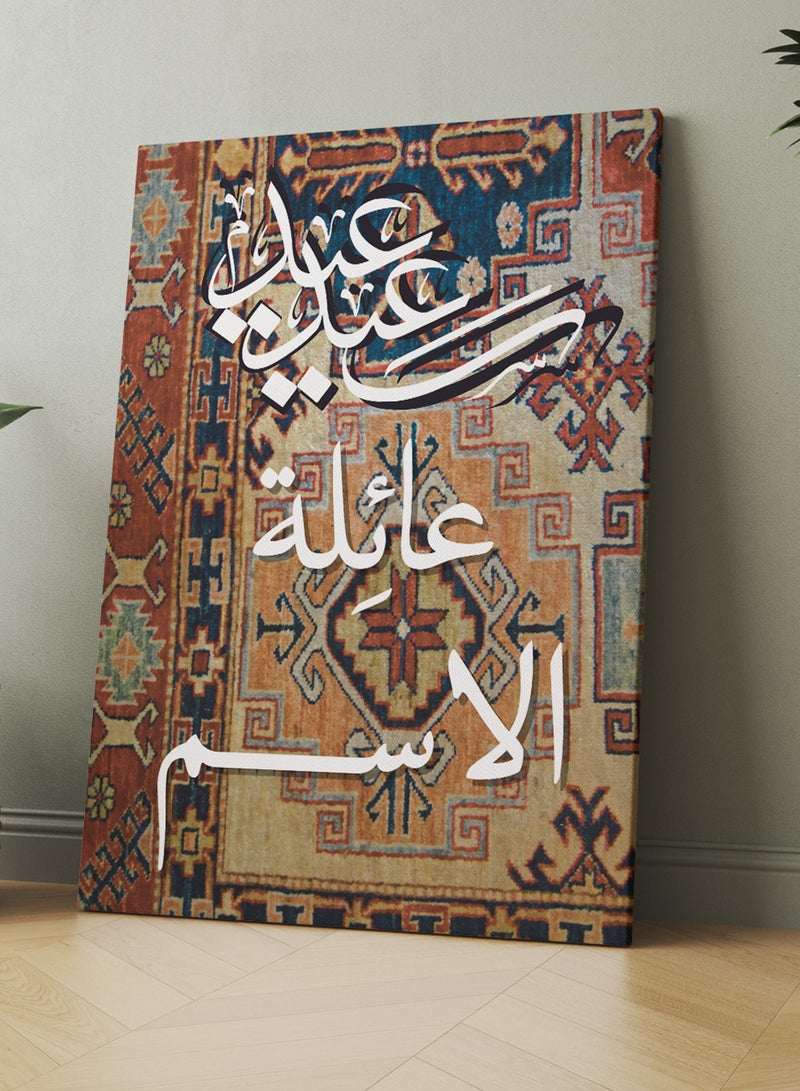 عيد سعيد
عائِلة
الاسم